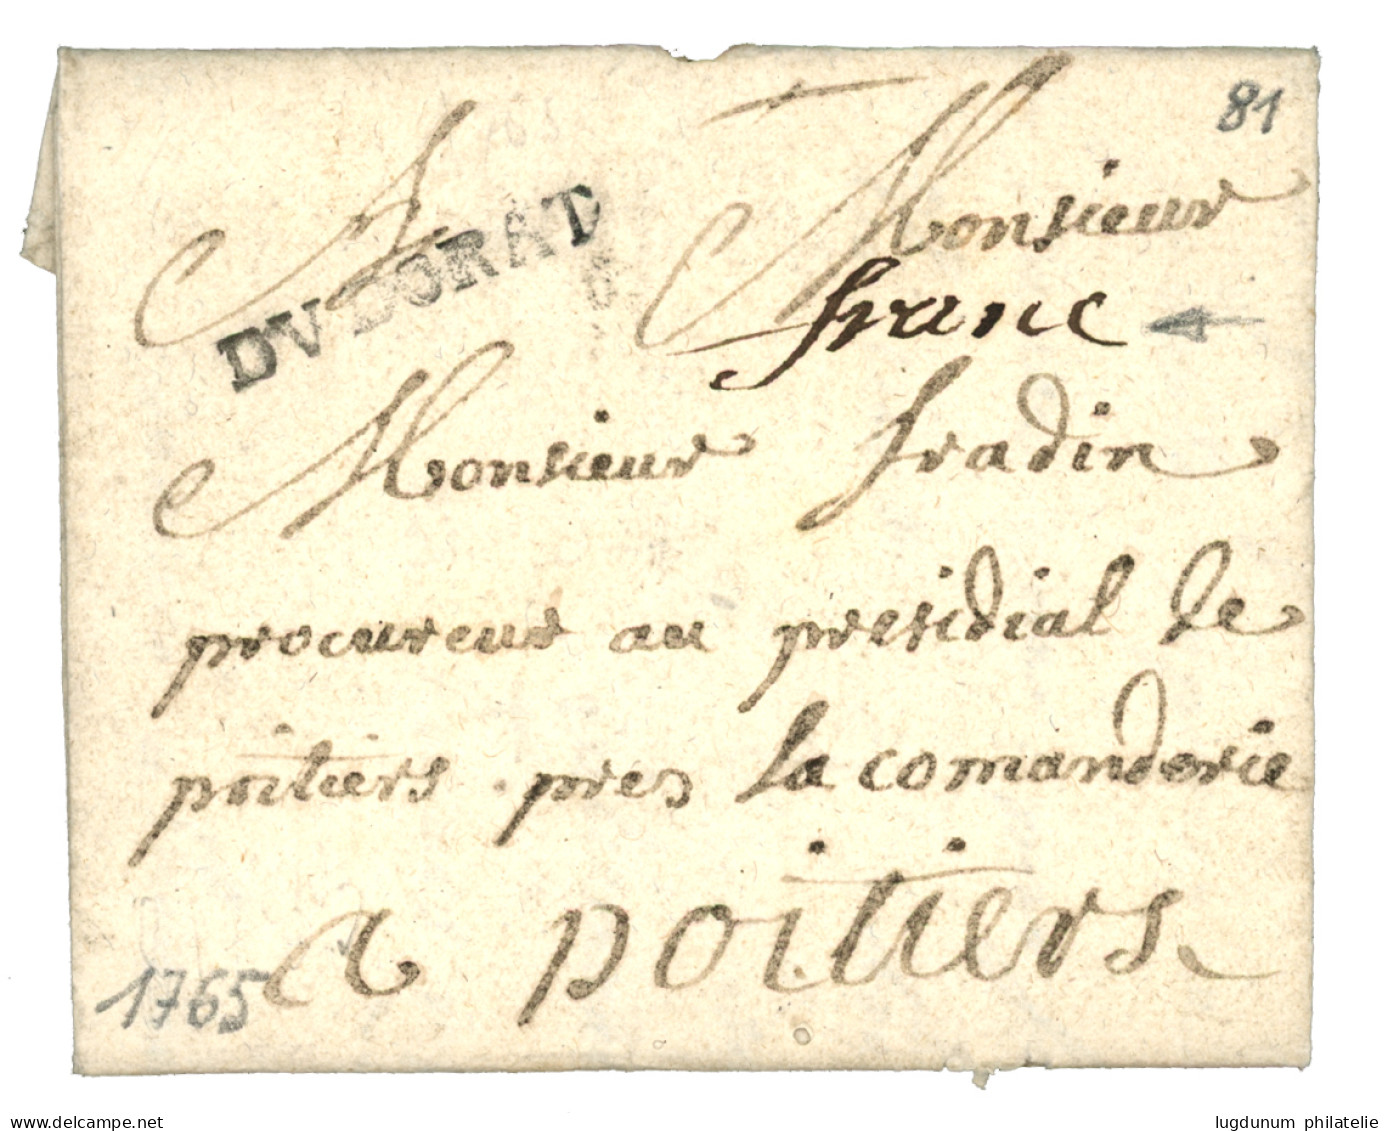 81
A Monsieur
DV DORAT
franc
Monsieur fradin
procureur au presidial de
poitiers . pres la comanderie
a poitiers
1765
www.delcampe.net
lugdunum philatelie